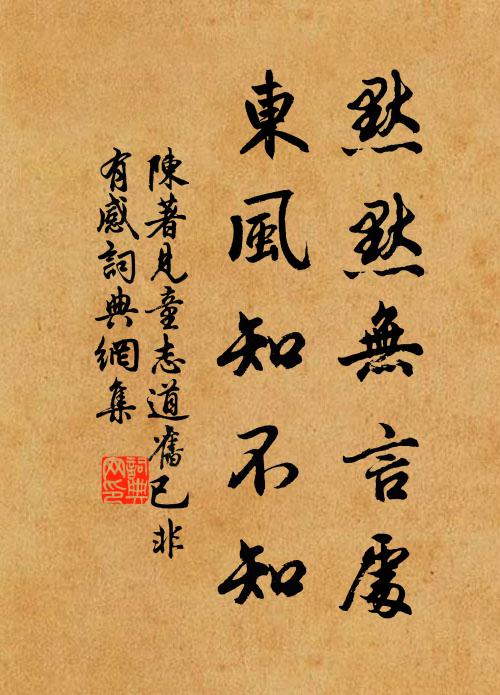 默默無言處
東風知不知
陳著見童志道舊已非
有感詞典網集
詞典
网印